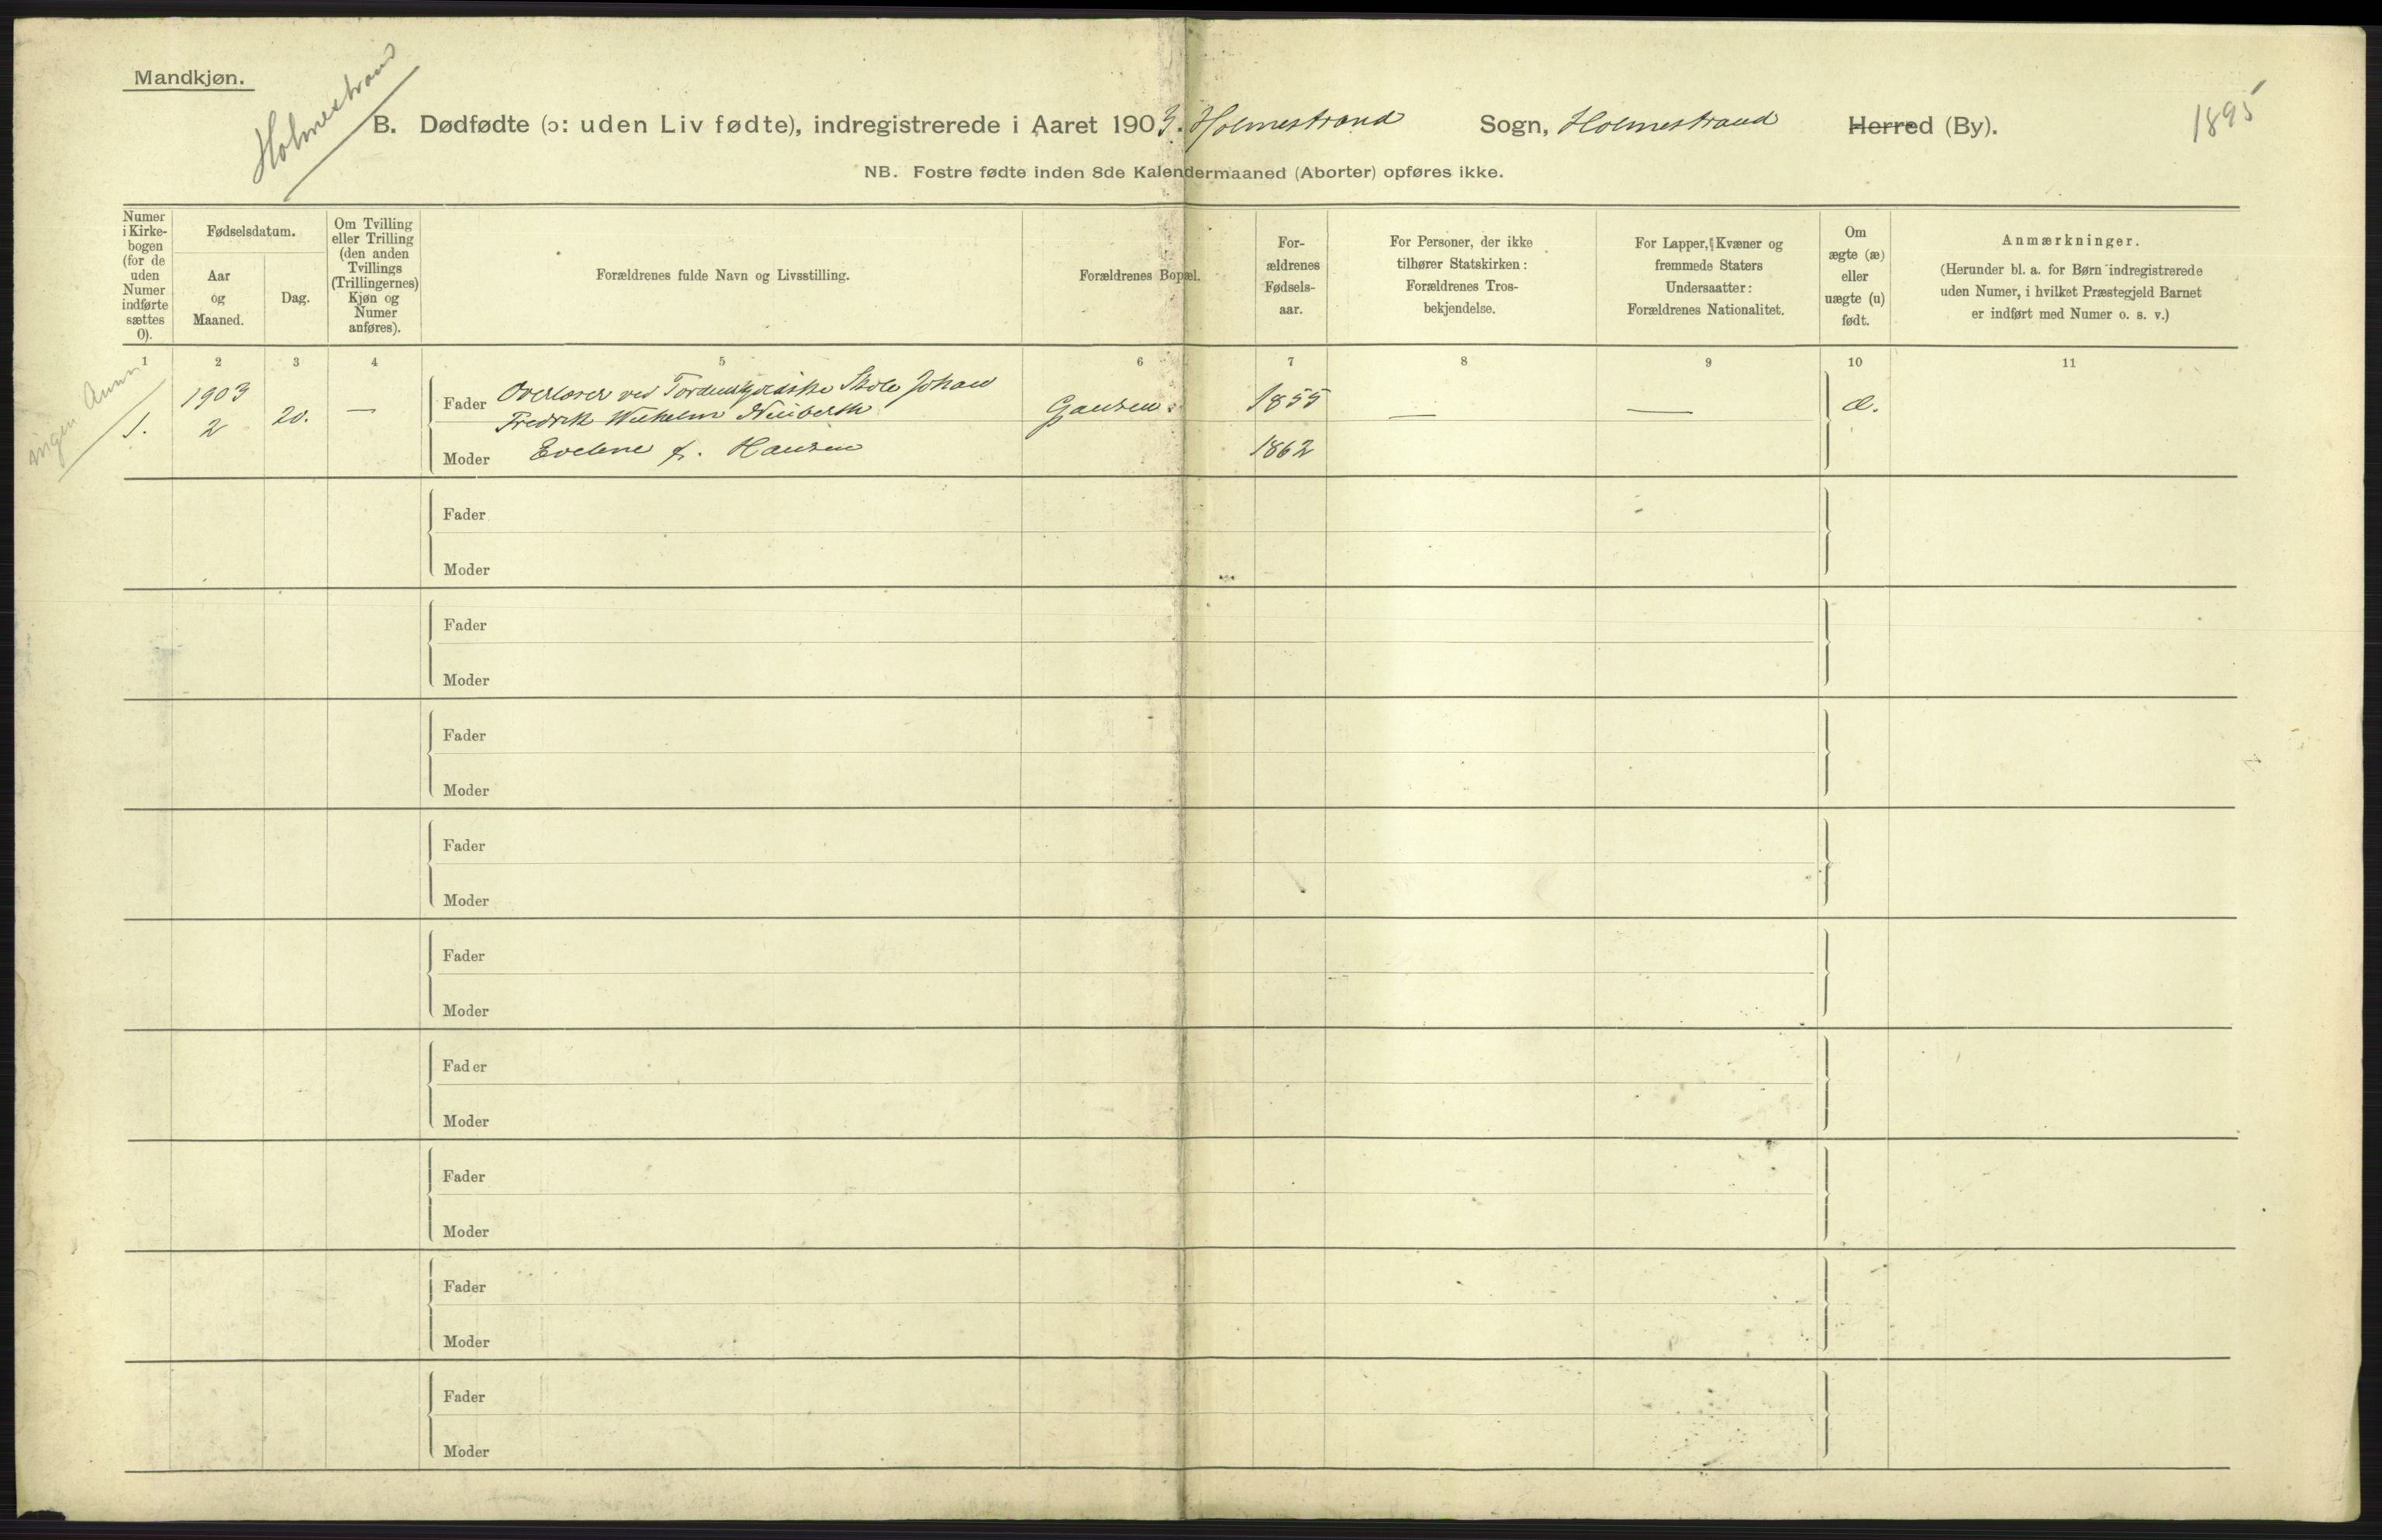 Mandkjøn.
Holmestrand
1895
B. Dødfødte (ɔ: uden Liv fødte), indregistrerede i Aaret 1903. Holmestrand Sogn, Holmestrand Herred (By).
NB. Fostre fødte inden 8de Kalendermaaned (Aborter) opføres ikke.
Numer
i Kirke-
bogen
(for de
uden
Numer
indførte
sættes
0).
Fødselsdatum.
Aar
og
Maaned.
Dag.
Om Tvilling
eller Trilling
(den anden
Tvillings
(Trillingernes)
Kjøn og
Numer
anføres).
Forældrenes fulde Navn og Livsstilling.
Forældrenes Bopæl.
For-
ældrenes
Fødsels-
aar.
For Personer, der ikke
tilhører Statskirken:
Forældrenes Tros-
bekjendelse.
For Lapper, Kvæner og
fremmede Staters
Undersaatter:
Forældrenes Nationalitet.
Om
ægte (æ)
eller
uægte (u)
født.
Anmærkninger.
(Herunder bl. a. for Børn indregistrerede
uden Numer, i hvilket Præstegjeld Barnet
er indført med Numer o. s. v.)
1 2 3 4 5 6 7 8 9 10 11
ingen Anm
1. 1903 2 20. —
Fader Overlærer ved Tordenskjoldske Skole Johan
Fredrik Wilhelm
Gausen. 1855 — — æ.
Moder Eveline f. Hansen 1862
Fader
Moder
Fader
Moder
Fader
Moder
Fader
Moder
Fader
Moder
Fader
Moder
Fader
Moder
Fader
Moder
Fader
Moder